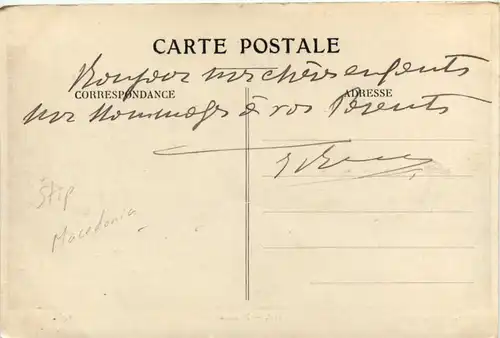 CARTE POSTALE
Bonjour mes chers enfants
CORRESPONDANCE ADRESSE
mes hommages à vos Parents
Štip
Macedonia